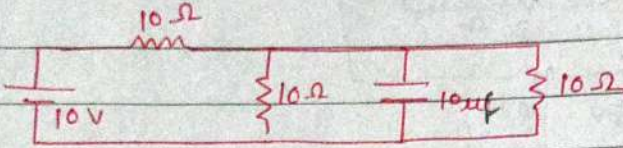 10 Ω
10 V
10 Ω
10 μf
10 Ω